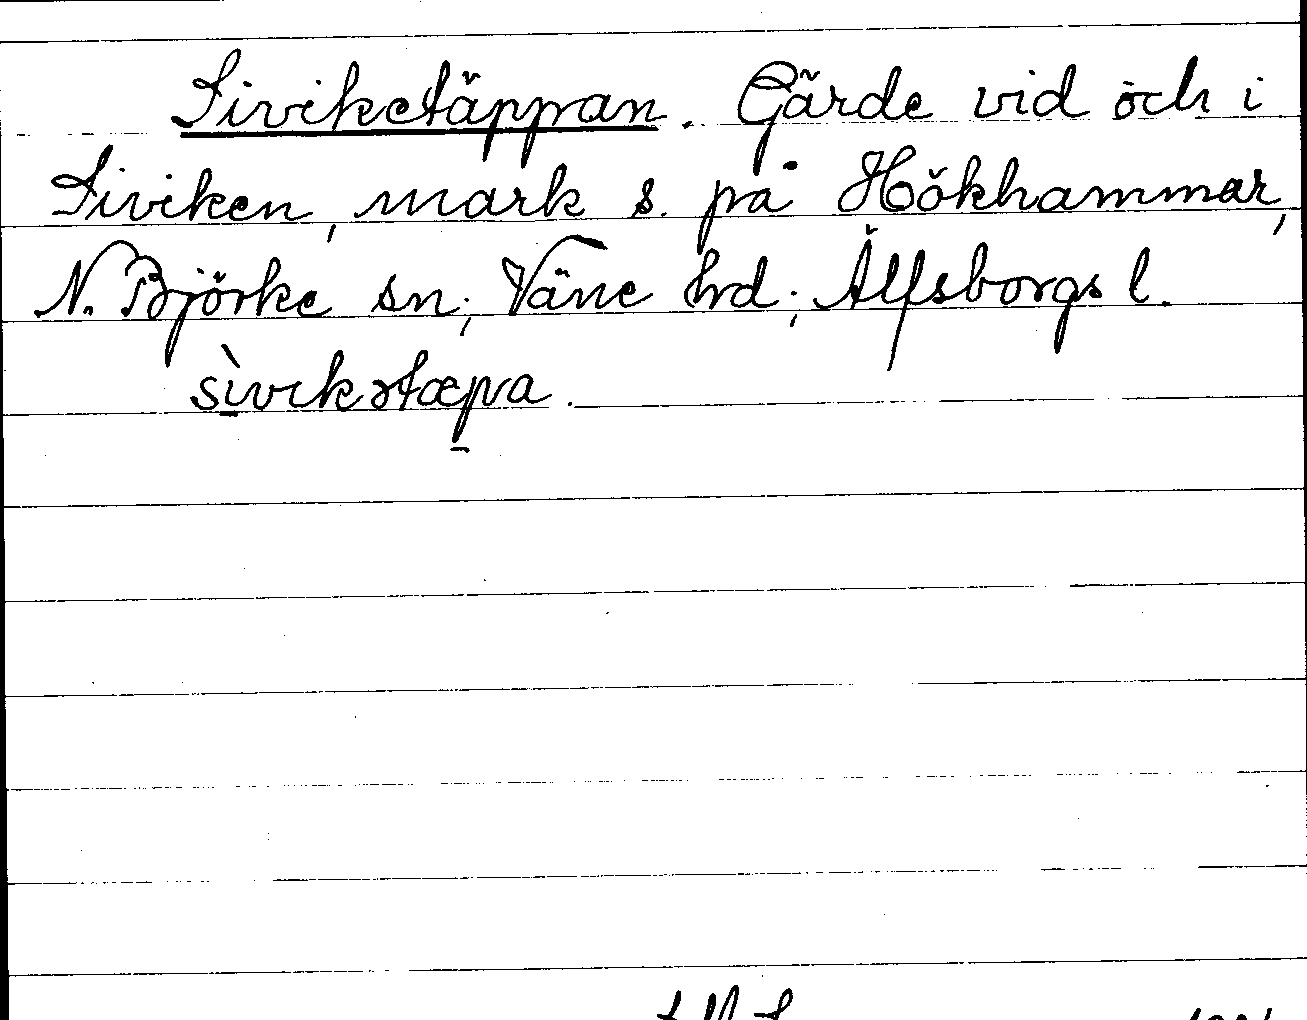 Siviketäppan. Gärde vid och i
Siviken, mark s. på Hökhammar,
N. Björke sn, Väne hrd, Älfsborgs l.
sìvikətæpa.